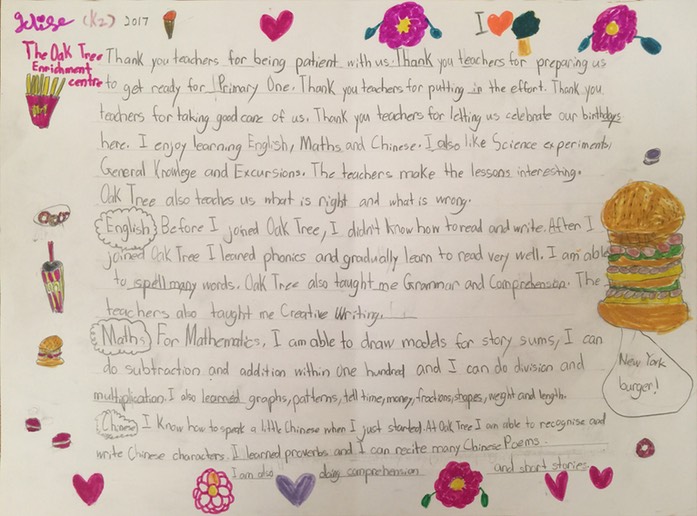 Jelise (K2) 2017
I
The Oak Tree
Enrichment
centre
Thank you teachers for being patient with us. Thank you teachers for preparing us
to get ready for Primary One. Thank you teachers for putting in the effort. Thank you
teachers for taking good care of us. Thank you teachers for letting us celebrate our birthdays
here. I enjoy learning English, Maths and Chinese. I also like Science experiments,
General Knowlege and Excursions. The teachers make the lessons interesting.
Oak Tree also teachs us what is right and what is wrong.
English Before I joined Oak Tree, I didn't know how to read and write. After I
joined Oak Tree I leaned phonics and gradually learn to read very well. I am able
to spell many words. Oak Tree also taught me Grammar and Comprehension. The
teachers also taught me Creative Writing.
Maths For Mathematics, I am able to draw models for story sums, I can
do subtraction and addition within one hundred and I can do division and
multiplication. I also learned graphs, patterns, tell time, money, fractions, shapes, weight and length.
Chinese I Know how to speak a little Chinese when I just started. At Oak Tree I am able to recognise and
write Chinese characters. I learned proverbs and I can recite many Chinese Poems.
I am also doing comprehension and short stories.
New York
burger!